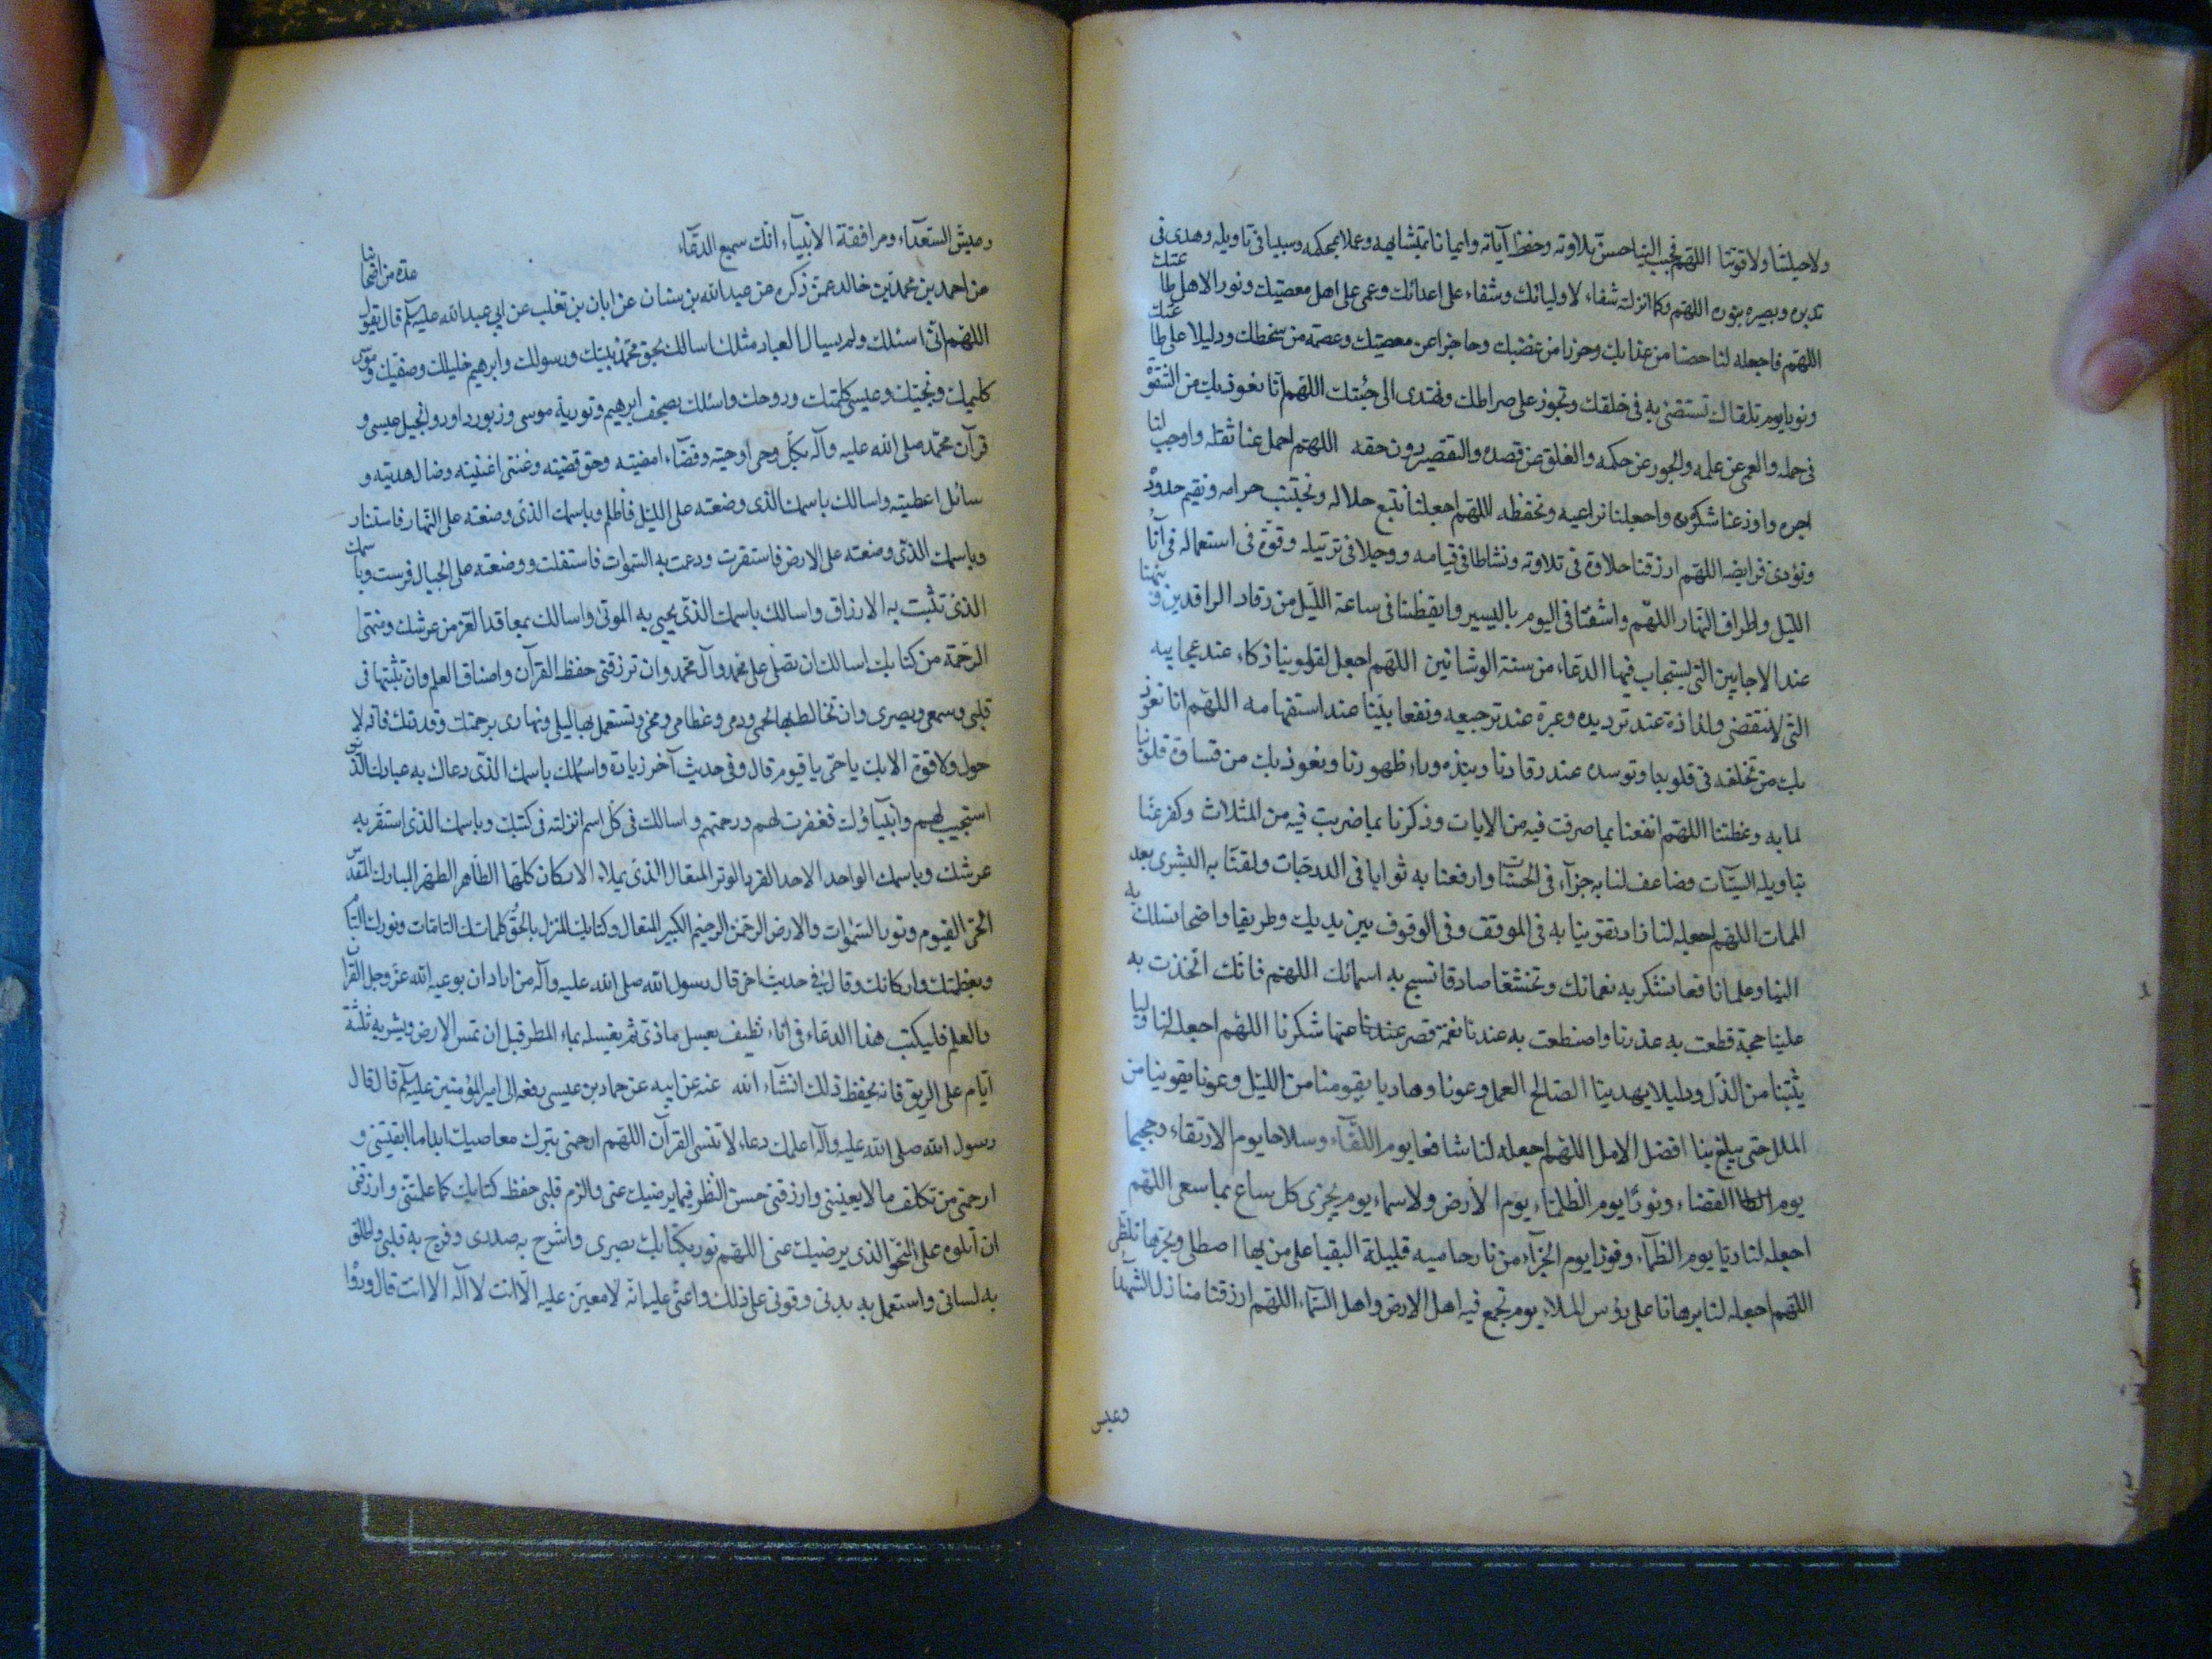 ولا حيلتنا ولا قوتنا اللهم فحبب الينا حسن تلاوته وحفظ آياته وايمانا بمتشابهه وعملا بمحكمه وسببا في تاويله وهدى في
تدبره وبصيره بنوره اللهم وكما انزلته شفاء لاوليائك وشقاء على اعدائك وعمى على اهل معصيتك ونورا لاهل طاعتك
اللهم فاجعله لنا حصنا من عذابك وحرزا من غضبك وحاجزا عن معصيتك وعصمة من سخطك ودليلا على طاعتك
ونورا يوم نلقاك نستضئ به في خلقك ونجوز على صراطك ونهتدى الى جنتك اللهم انا نعوذ بك من الشقوة
في حمله والعمى عن علمه والجور عن حكمه والغلو عن قصده والتقصير دون حقه اللهم احمل عنا ثقله واوجب لنا
اجره واوزعنا شكره واجعلنا نراعيه ونحفظه اللهم اجعلنا نتبع حلاله ونجتنب حرامه ونقيم حدوده
ونؤدى فرايضه اللهم ارزقنا حلاوة في تلاوته ونشاطا في قيامه ووجلا في ترتيله وقوة في استعماله في آناء
الليل واطراف النهار اللهم واشفنا في اليوم باليسير وايقظنا في ساعة الليل من رقاد الراقدين ونبهنا
عند الاحايين التي يستجاب فيها الدعاء من سنة الوسنانين اللهم اجعل لقلوبنا ذكاء عند عجايبه
التي لا تنقضي ولذاذة عند ترديده وعبرة عند ترجيعه ونفعا بينا عند استفهامه اللهم انا نعوذ
بك من تخلفه في قلوبنا وتوسده عند رقادنا ونبذه وراء ظهورنا ونعوذ بك من قساوة قلوبنا
لما به وعظتنا اللهم انفعنا بما صرفت فيه من الايات وذكرنا بما ضربت فيه من المثلات وكفر عنا
بتاويله السيئات وضاعف لنا به جزاء في الحسنات وارفعنا به ثوابا في الدرجات ولقنا به البشرى بعد
الممات اللهم اجعله لنا زادا تقوينا به في الموقف وفي الوقوف بين يديك وطريقا واضحا نسلك به
اليك وعلما نافعا نشكر به نعمائك وتخشعا صادقا نسبح به اسمائك اللهم فانك اتخذت به
علينا حجة قطعت به عذرنا واصطنعت به عندنا نعمة قصر عنها شكرنا اللهم اجعله لنا وليا
يثبتنا من الذلل ودليلا يهدينا لصالح العمل وعونا وهاديا يقومنا من الليل وعونا يقوينا من
الملل حتى يبلغ بنا افضل الامل اللهم اجعله لنا شافعا يوم اللقاء وسلاحا يوم الارتقاء وحجيجا
يوم القضاء ونورا يوم الظلماء يوم لا ارض ولا سماء يوم يجزى كل ساع بما سعى اللهم
اجعله لنا ريا يوم الظماء وفوزا يوم الجزاء من نار حاميه قليلة البقيا على من بها اصطلى وبحرها تلظى
اللهم اجعله لنا برهانا على رؤس الملاء يوم تجمع فيه اهل الارض واهل السماء اللهم ارزقنا منازل الشهداء
وعيش
وعيش السعداء ومرافقة الانبياء انك سميع الدعاء عدة من اصحابنا
عن احمد بن محمد بن خالد عمن ذكره عن عبد الله بن سنان عن ابان بن تغلب عن ابي عبد الله عليه السلم قال تقول
اللهم اني اسئلك ولم يسال العباد مثلك اسالك بحق محمد نبيك ورسولك وابرهيم خليلك وصفيك وموسى
كليمك ونجيك وعيسى كلمتك وروحك واسئلك بصحف ابرهيم وتورية موسى وزبور داود وانجيل عيسى و
قرآن محمد صلى الله عليه وآله بكل وحى اوحيته وقضاء امضيته وحق قضيته وغنى اغنيته وضال هديته و
سائل اعطيته واسالك باسمك الذى وضعته على الليل فاظلم وباسمك الذى وضعته على النهار فاستنار
وباسمك الذى وضعته على الارض فاستقرت ودعمت به السموات فاستقلت ووضعته على الجبال فرست وباسمك
الذى تثبت به الارزاق واسالك باسمك الذى يحيى به الموتى واسالك بمعاقد العز من عرشك ومنتهى
الرحمة من كتابك اسالك ان تصلى على محمد وآل محمد وان ترزقنى حفظ القرآن واصناف العلم وان تثبتها في
قلبى وسمعى وبصرى وان تخالط بها لحمى ودمى وعظامى ومخى وتستعمل بها ليلى ونهارى برحمتك وقدرتك فانه لا
حول ولا قوة الا بك يا حى يا قيوم قال وفي حديث آخر زيادة واسئلك باسمك الذى دعاك به عبادك الذين
استجبت لهم وانبياؤك فغفرت لهم ورحمتهم واسالك في كل اسم انزلته في كتبك وباسمك الذى استقر به
عرشك وباسمك الواحد الاحد الفرد الوتر المتعال الذى يملاء الاركان كلها الطاهر الطهر المبارك المقدس
الحى القيوم ونور السموات والارض الرحمن الرحيم الكبير المتعال وكتابك المنزل بالحق وكلماتك التامات ونورك التام
وبعظمتك واركانك وقال في حديث اخر قال رسول الله صلى الله عليه وآله من اراد ان يوعيه الله عز وجل القرآن
والعلم فليكتب هذا الدعاء في اناء نظيف بعسل ماذى ثم يغسله بماء المطر قبل ان تمس الارض ويشربه ثلثة
ايام على الريق فانه يحفظ ذلك انشاء الله عنه عن ابيه عن حماد بن عيسى رفعه الى امير المؤمنين عليه السلم قال قال
رسول الله صلى الله عليه وآله اعلمك دعاء لا تنسى القرآن اللهم ارحمنى بترك معاصيك ابدا ما ابقيتنى و
ارحمنى من تكلف ما لا يعنينى وارزقنى حسن النظر فيما يرضيك عنى والزم قلبى حفظ كتابك كما علمتنى وارزقنى
ان اتلوه على النحو الذى يرضيك عنى اللهم نور بكتابك بصرى واشرح به صدرى وفرح به قلبى واطلق
به لسانى واستعمل به بدنى وقونى على ذلك واعنى عليه انه لا معين عليه الا انت لا آله الا انت قال ورواه